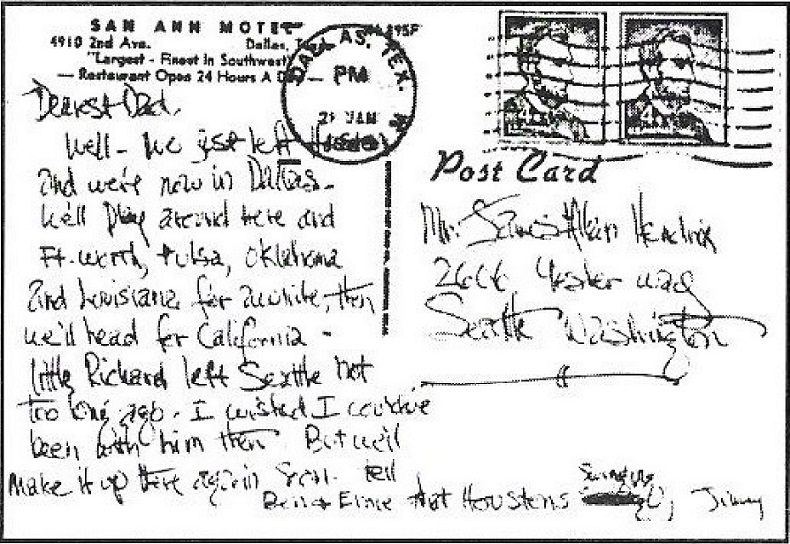 SAN ANN MOTEL
4910 2nd Ave. Dallas,
"Largest - Finest in Southwest"
— Restaurant Open 24 Hours A
DALLAS, TEX.
PM
JAN
4¢ 4¢
Post Card
Dearest Dad,
Well - we just left
and we're now in Dallas -
We'll play around here and
Ft. Worth, Tulsa, Oklahoma
and Louisiana for awhile, then
we'll head for California -
Little Richard left Seattle not
too long ago. I wished I could've
been with him then. But we'll
make it up there again soon. Tell
Ben & Ernie that Houstons Swinging, Jimmy
Mr. James Allen Hendrix
2606 Yesler Way
Seattle Washington